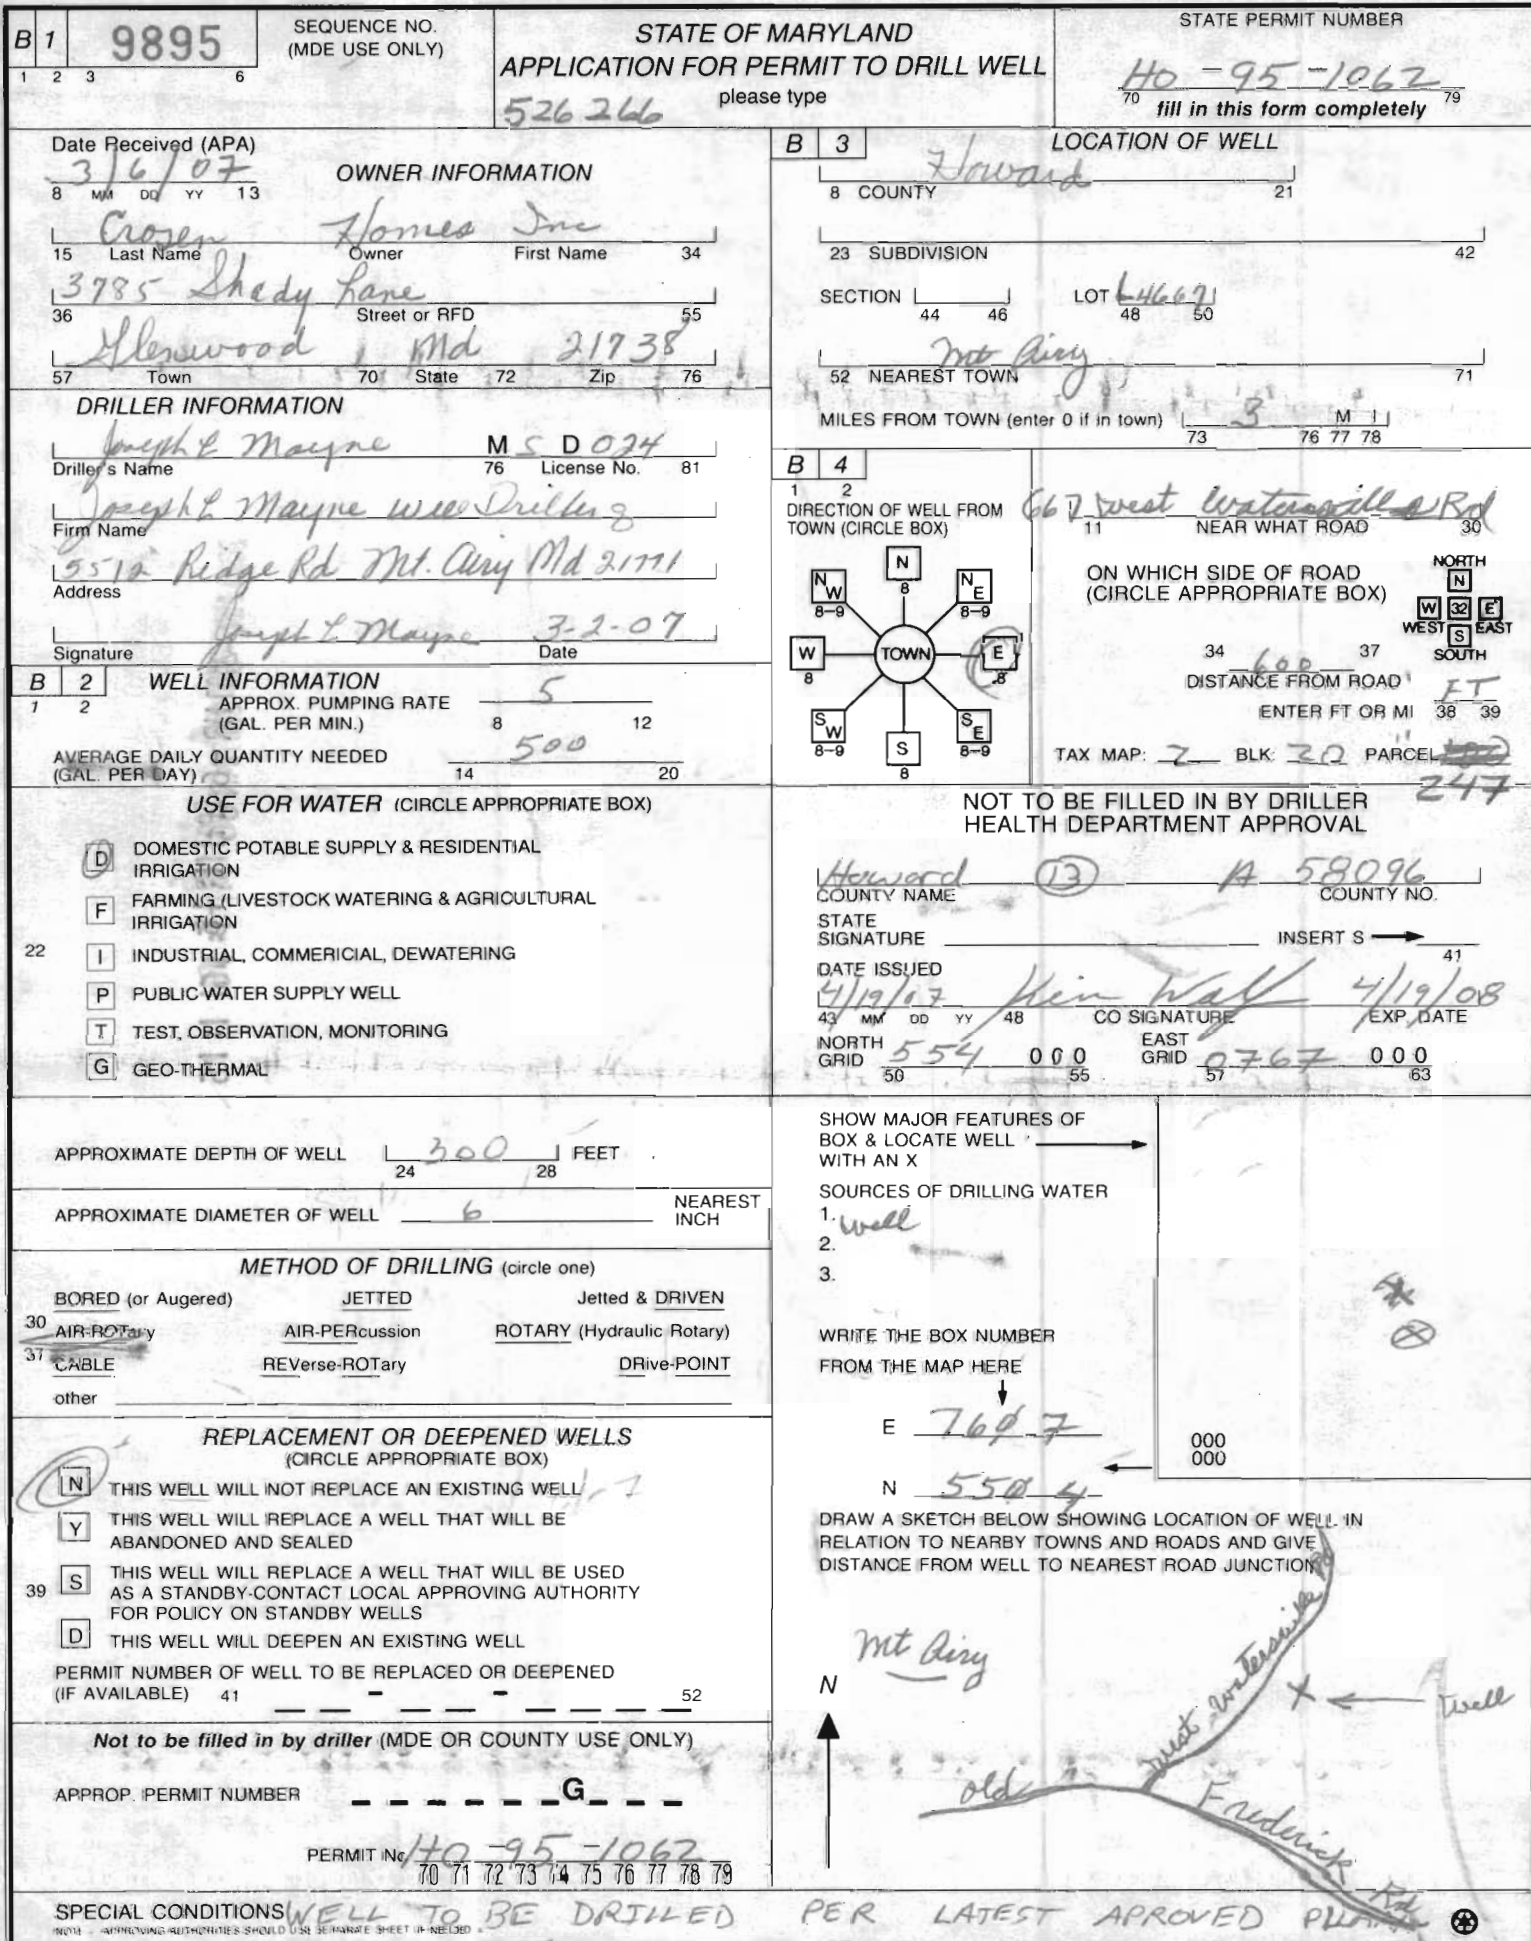 B 1 9895
1 2 3 6
SEQUENCE NO.
(MDE USE ONLY)
STATE OF MARYLAND
APPLICATION FOR PERMIT TO DRILL WELL
please type
526266
STATE PERMIT NUMBER
HO-95-1062
70 79
fill in this form completely
Date Received (APA)
3/6/07
8 MM DD YY 13
OWNER INFORMATION
Homes Inc
15 Last Name Owner First Name 34
3785 Shady Lane
36 Street or RFD 55
Glenwood Md 21738
57 Town 70 State 72 Zip 76
DRILLER INFORMATION
Joseph L Mayne M S D 024
Driller's Name 76 License No. 81
Joseph L Mayne Well Drilling
Firm Name
5512 Ridge Rd Mt. Airy Md 21771
Address
Joseph L Mayne 3-2-07
Signature Date
B 2 WELL INFORMATION
1 2
APPROX. PUMPING RATE 5
(GAL. PER MIN.) 8 12
AVERAGE DAILY QUANTITY NEEDED 500
(GAL. PER DAY) 14 20
USE FOR WATER (CIRCLE APPROPRIATE BOX)
D DOMESTIC POTABLE SUPPLY & RESIDENTIAL
IRRIGATION
F FARMING (LIVESTOCK WATERING & AGRICULTURAL
IRRIGATION
22 I INDUSTRIAL, COMMERICIAL, DEWATERING
P PUBLIC WATER SUPPLY WELL
T TEST, OBSERVATION, MONITORING
G GEO-THERMAL
APPROXIMATE DEPTH OF WELL 300 FEET
24 28
APPROXIMATE DIAMETER OF WELL 6 NEAREST
INCH
METHOD OF DRILLING (circle one)
BORED (or Augered) JETTED Jetted & DRIVEN
30 AIR-ROTary AIR-PERcussion ROTARY (Hydraulic Rotary)
37 CABLE REVerse-ROTary DRive-POINT
other
REPLACEMENT OR DEEPENED WELLS
(CIRCLE APPROPRIATE BOX)
N THIS WELL WILL NOT REPLACE AN EXISTING WELL
Y THIS WELL WILL REPLACE A WELL THAT WILL BE
ABANDONED AND SEALED
39 S THIS WELL WILL REPLACE A WELL THAT WILL BE USED
AS A STANDBY-CONTACT LOCAL APPROVING AUTHORITY
FOR POLICY ON STANDBY WELLS
D THIS WELL WILL DEEPEN AN EXISTING WELL
PERMIT NUMBER OF WELL TO BE REPLACED OR DEEPENED
(IF AVAILABLE) 41 - - 52
Not to be filled in by driller (MDE OR COUNTY USE ONLY)
APPROP. PERMIT NUMBER G
PERMIT No. HO-95-1062
70 71 72 73 74 75 76 77 78 79
B 3 LOCATION OF WELL
Howard
8 COUNTY 21
23 SUBDIVISION 42
SECTION LOT
44 46 48 50
Mt Airy
52 NEAREST TOWN 71
MILES FROM TOWN (enter 0 if in town) 3 M I
73 76 77 78
B 4
1 2
DIRECTION OF WELL FROM
TOWN (CIRCLE BOX)
N
8
NW NE
8-9 8-9
W TOWN E
8 8
SW SE
8-9 8-9
S
8
667 West Watersville Rd
11 NEAR WHAT ROAD 30
ON WHICH SIDE OF ROAD
(CIRCLE APPROPRIATE BOX)
NORTH
N
W 32 E
WEST S EAST
SOUTH
34 600 37
DISTANCE FROM ROAD
FT
ENTER FT OR MI 38 39
TAX MAP: 2 BLK: 20 PARCEL
247
NOT TO BE FILLED IN BY DRILLER
HEALTH DEPARTMENT APPROVAL
Howard 13 A 58096
COUNTY NAME COUNTY NO.
STATE
SIGNATURE INSERT S
41
DATE ISSUED
4/19/07 4/19/08
43 MM DD YY 48 CO SIGNATURE EXP. DATE
NORTH
GRID 554 000
50 55
EAST
GRID 0767 000
57 63
SHOW MAJOR FEATURES OF
BOX & LOCATE WELL
WITH AN X
SOURCES OF DRILLING WATER
1. well
2.
3.
WRITE THE BOX NUMBER
FROM THE MAP HERE
E 7607
N 5504
000
000
DRAW A SKETCH BELOW SHOWING LOCATION OF WELL IN
RELATION TO NEARBY TOWNS AND ROADS AND GIVE
DISTANCE FROM WELL TO NEAREST ROAD JUNCTION
Mt Airy
N
West Watersville Rd
X Well
Old Frederick Rd
SPECIAL CONDITIONS WELL TO BE DRILLED PER LATEST APROVED PLAN
NOTE - APPROVING AUTHORITIES SHOULD USE SEPARATE SHEET IF NEEDED